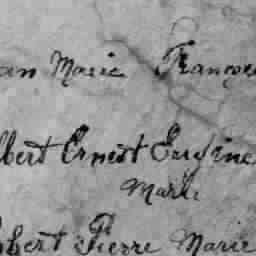 an Marie Françoi
lbert Ernest Eugène
Marie
obert Pierre Marie